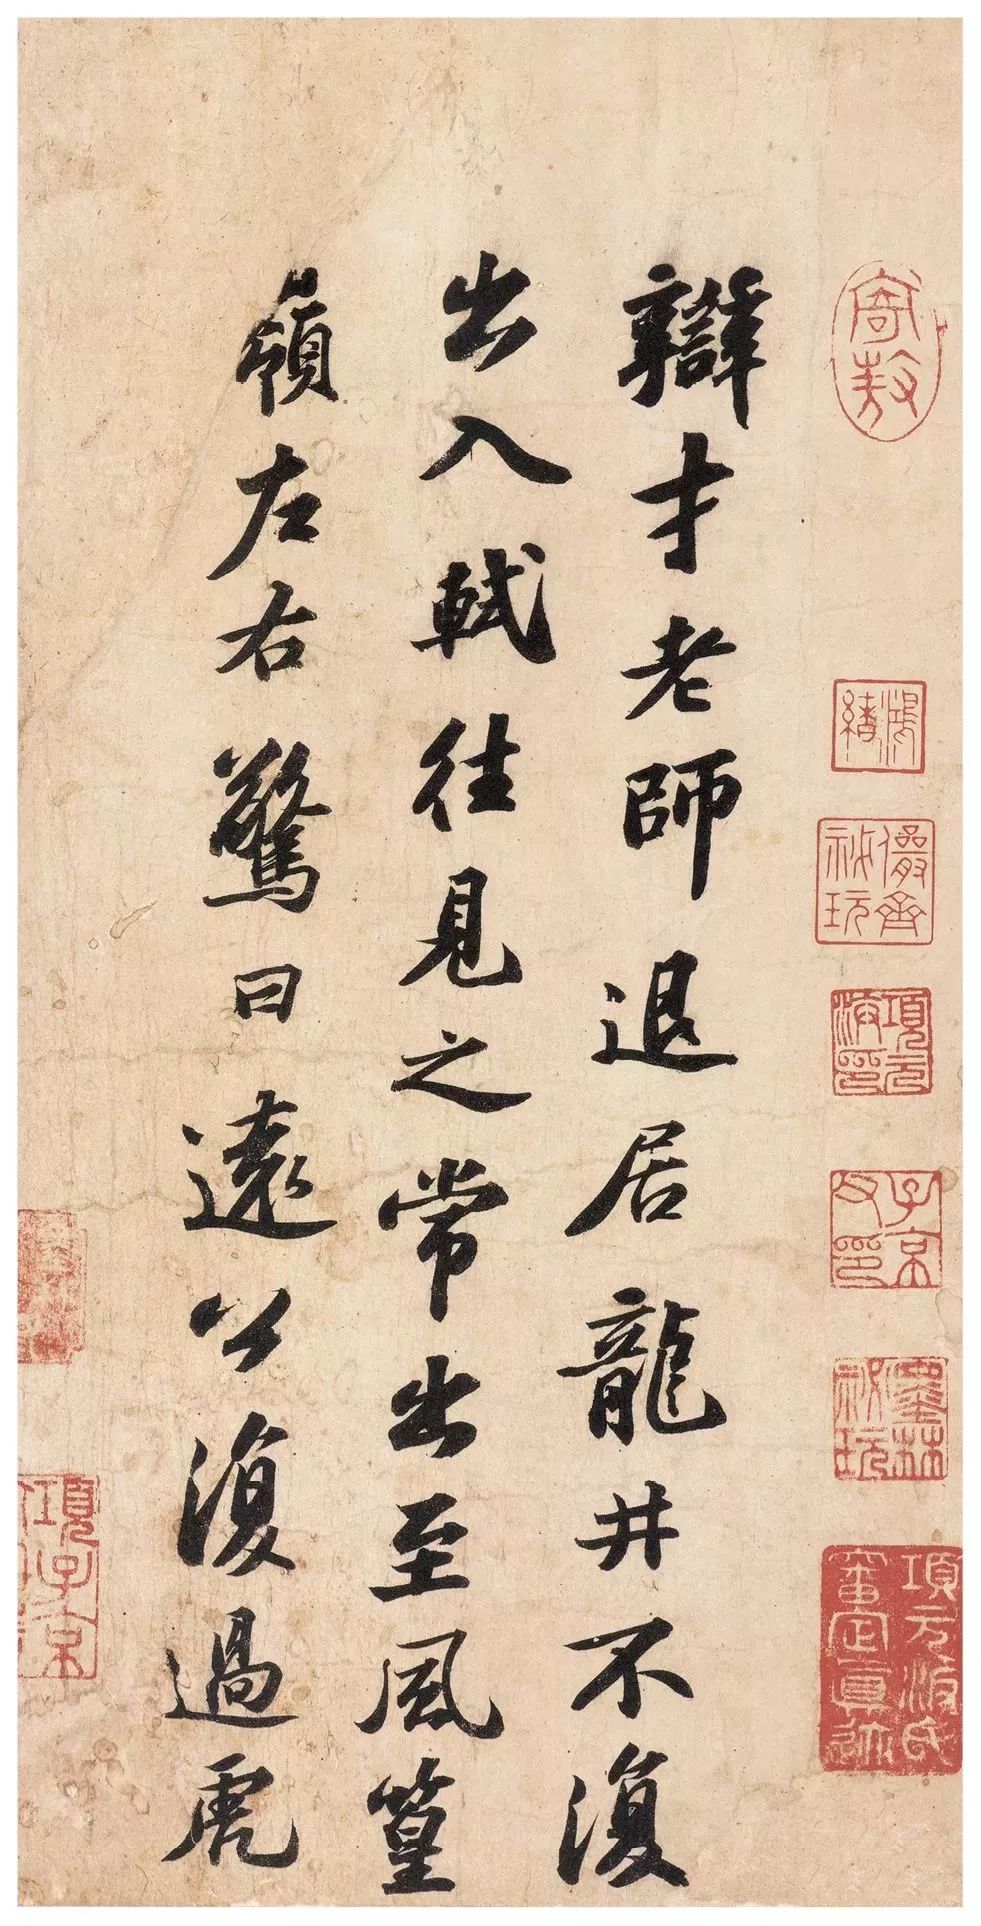 辯才老師退居龍井不復
出入軾往見之常出至風篁
嶺左右驚曰遠公復過虎
寄敖
項元汴印
子京父印
墨林祕玩
項元汴氏審定真跡
項子京